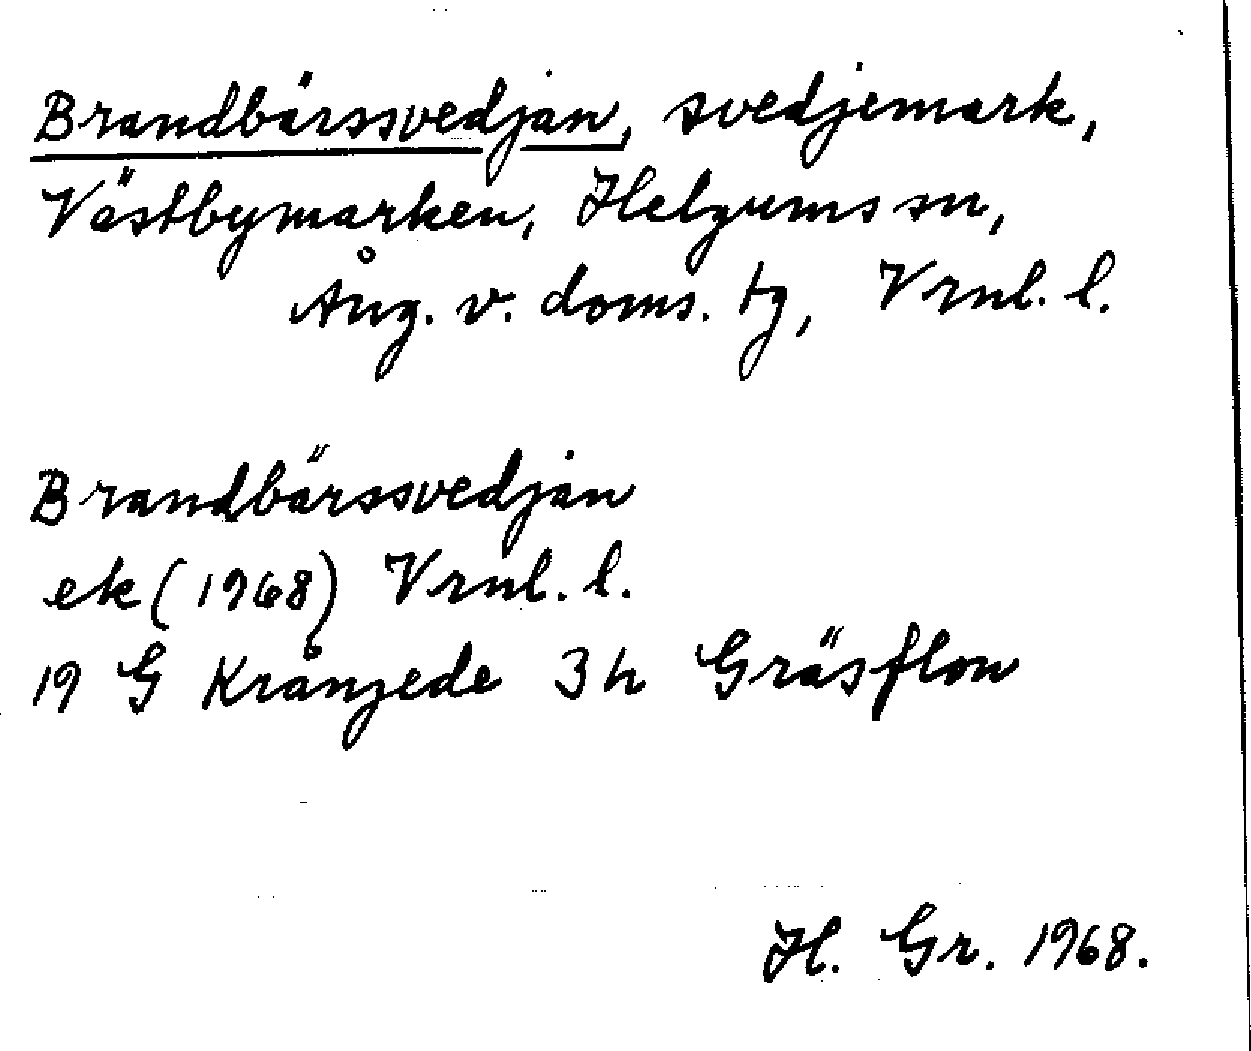 Brandbärssvedjan, svedjemark,
Västbymarken, Helgums sn,
Ång. v. doms. tg, Vrnl. l.
Brandbärssvedjan
ek (1968) Vrnl. l.
19 G Krångede 3 h Gräsflon
H. Gr. 1968.